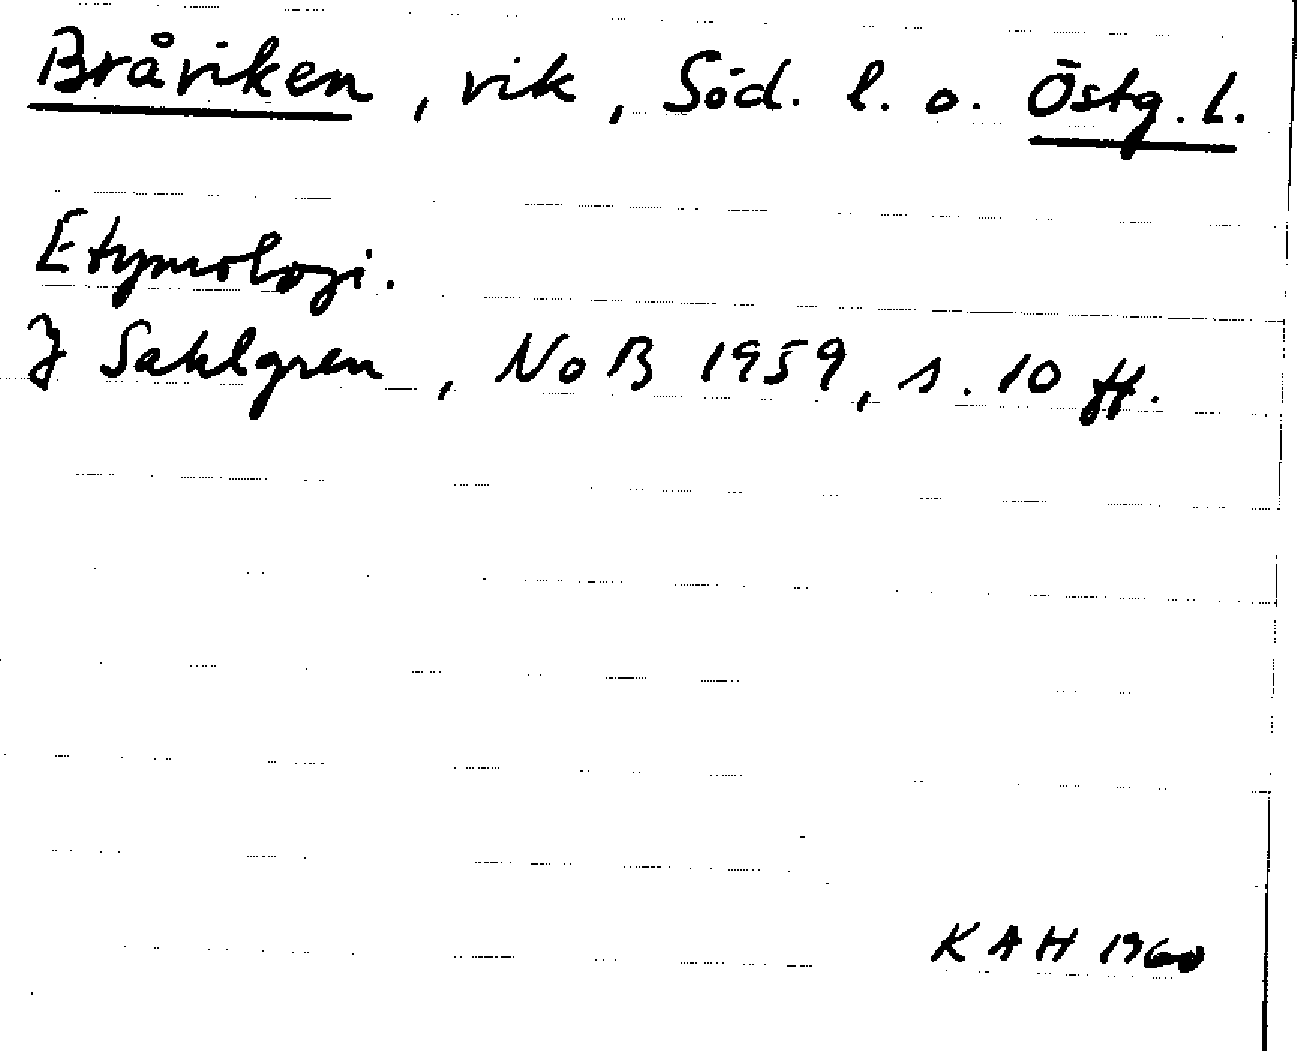 Bråviken, vik, Söd. l. o. Östg. l.
Etymologi.
J Sahlgren, NoB 1959, s. 10 ff.
KAH 1960